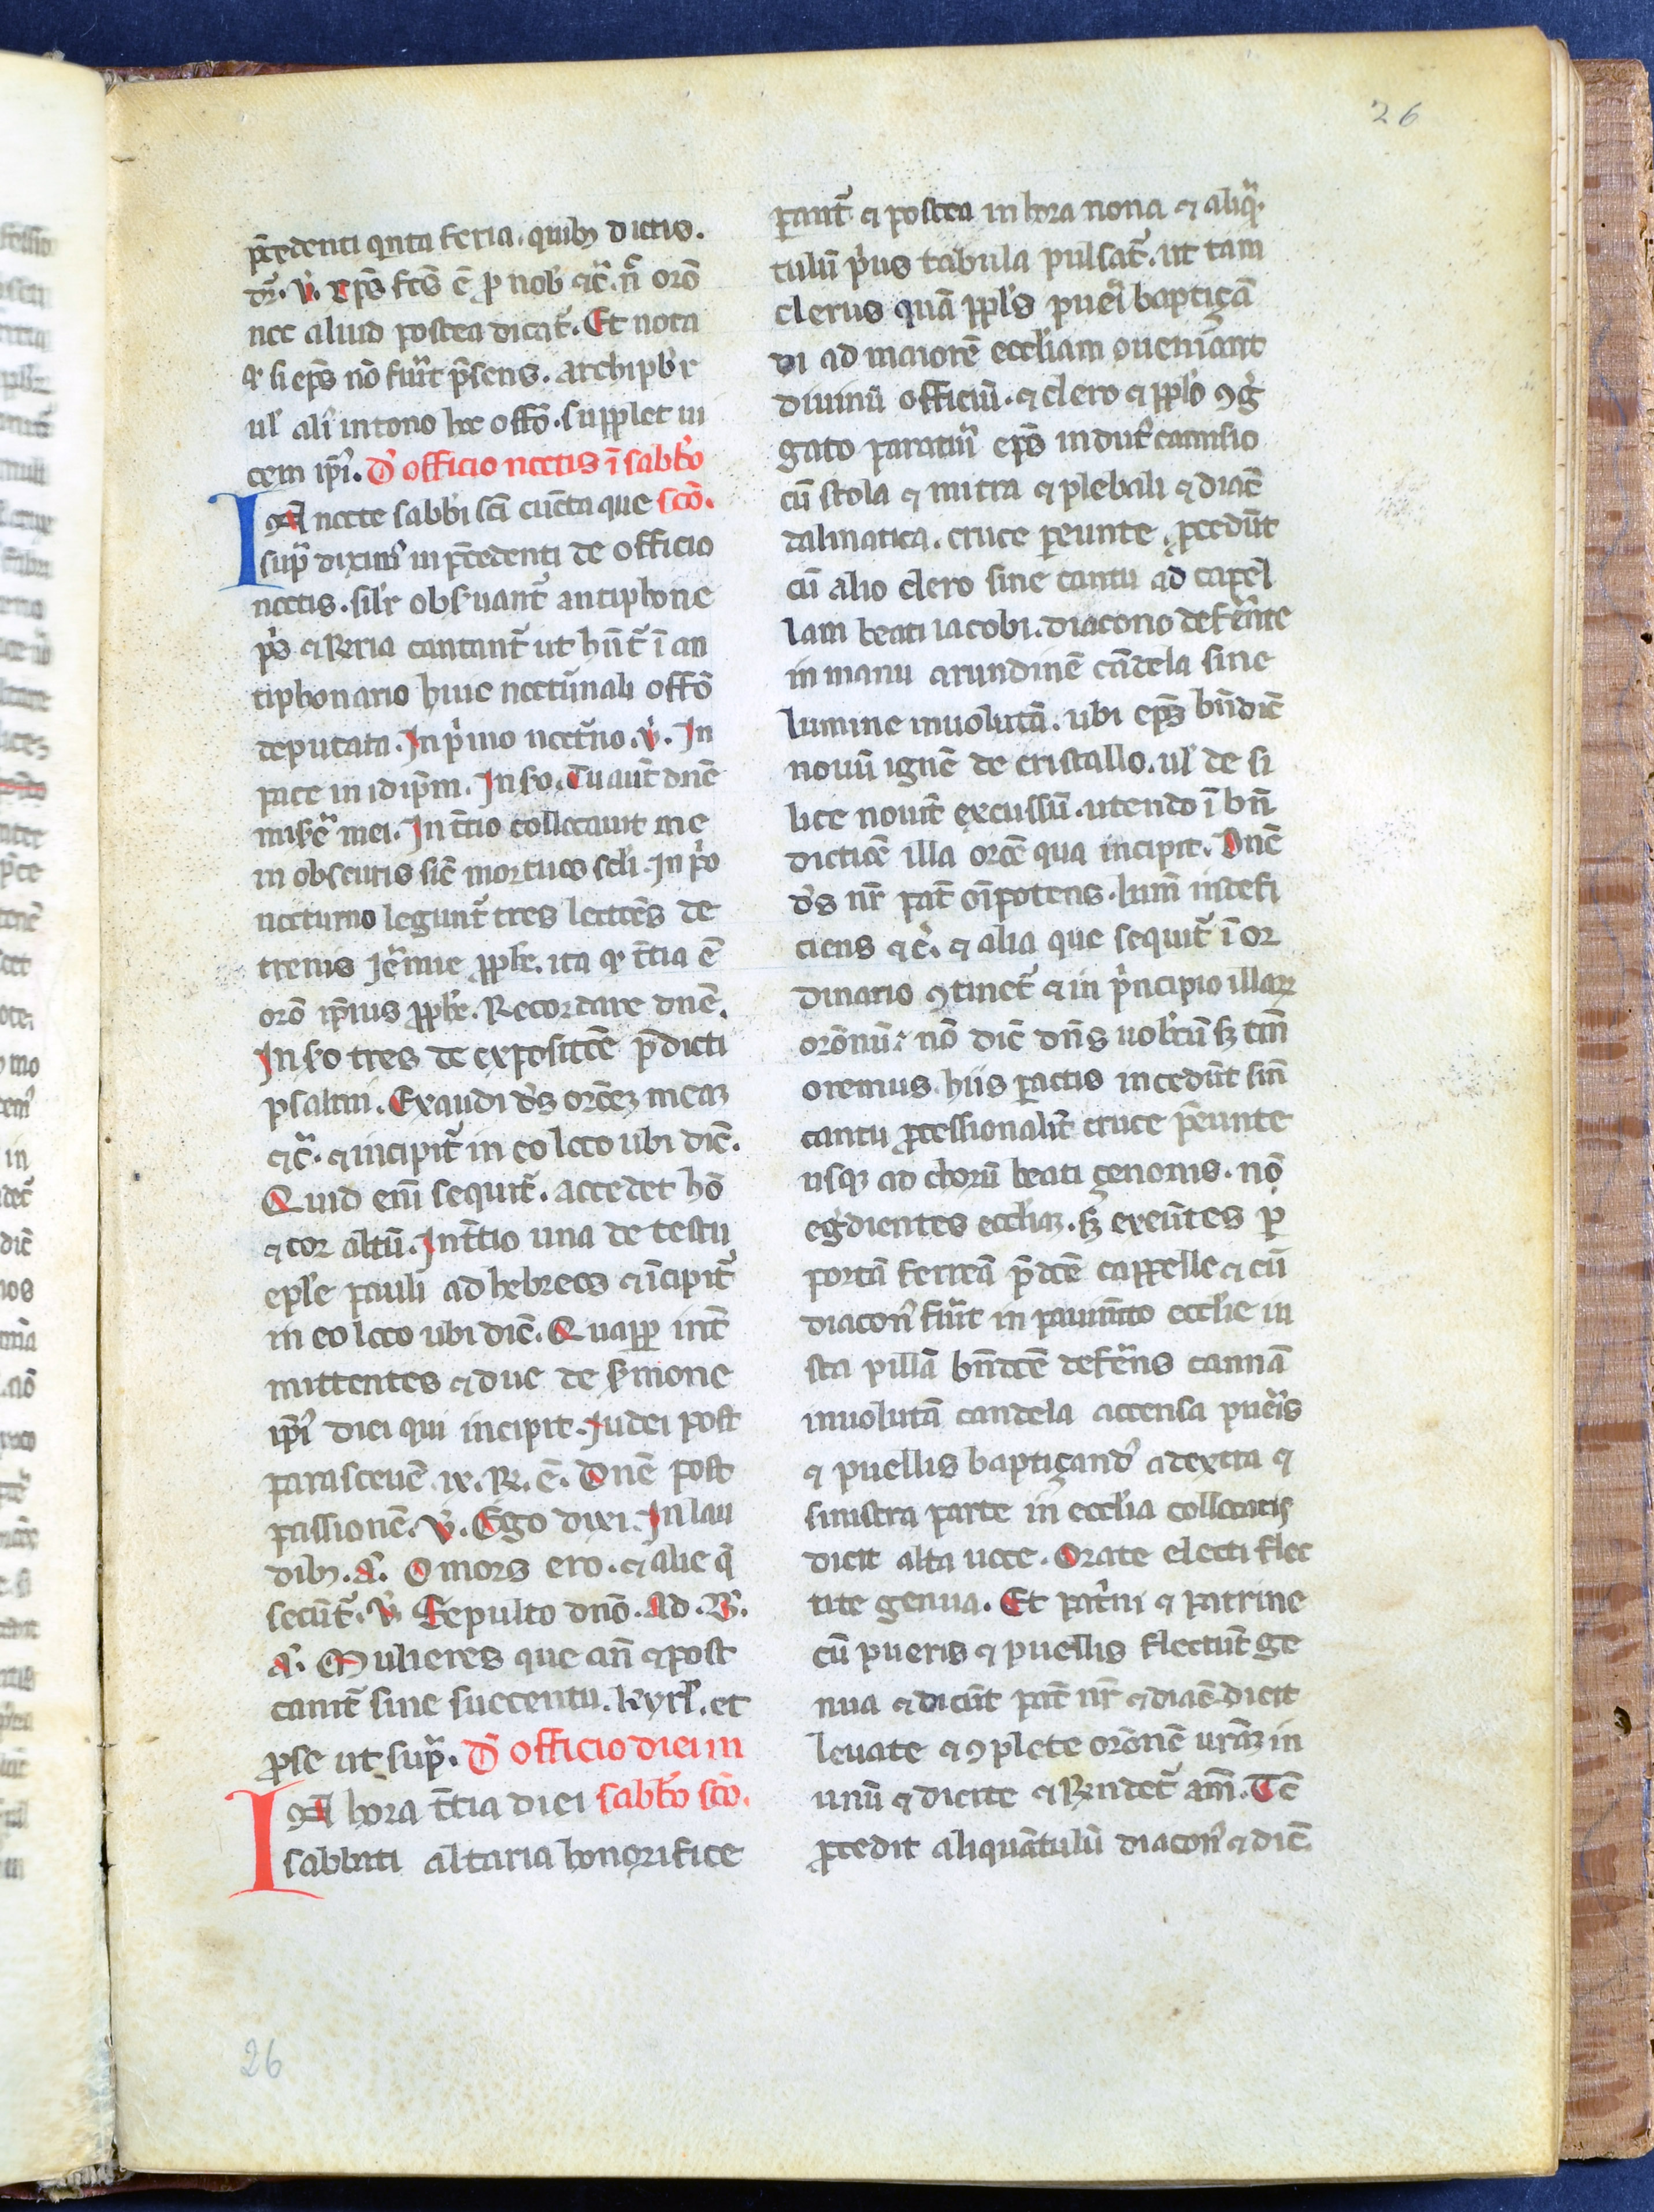 26
p̄cedenti qnta feria. quibꝫ dictis.
dr̄. ℣. xp̄s fc̄s ē ꝓ nob' ⁊c̄. n̄ orō
nec aliud postea dicat᷑. Et nota
ꝙ si ep̄s nō fuit p̄sens. archipb'r
ul' ali' in tono hoc offō. supplet ui
cem ip̄i'. D' officio noctis ī sabb'o
In nocte sabb'i sc̄i cūcta que sc̄o.
sup̄ dixim' in p̄cedenti de officio
noctis. sil'r obẛuant᷑ antiphone
p̄s ⁊ R̄oria cantant᷑ ut hn̄t᷑ ī an
tiphonario huic noctūnali offō
deputata. In p'mo noct'no. ℣. In
pace in idip̄m. In ẜo. Tu aut̄ dn̄e
miẜe' mei. In t̄tio collocauit me
in obscuris sic̄ mortuos sc̄li. In p'o
nocturno legunt᷑ tres lectōēs de
trenis Je'mie ꝓph'e. ita ꝙ t̄tia ē
orō ip̄ius ꝓph'e. Recordare dn̄e.
In ẜo tres de expositōe p̄dicti
psalmi. Exaudi d's orōeꝫ meaꝫ
⁊c̄. ⁊ incipit᷑ in eo loco ubi dic̄.
Quid eni᷑ sequit᷑. accedet hō
⁊ cor altū. In t̄tio una de testu
epl'e pauli ad hebreos ⁊ īcipit᷑
in eo loco ubi dic̄. Quapp̱ int̄
mittentes ⁊ due de ẜmone
ip̄i' diei qui incipit. Judei post
parasceuē. ix. R̄. ē. Dn̄e post
passionē. ℣. Ego dixi. In lau
dibꝫ. a'. O mors ero. ⁊ alie q̄
secūt᷑. ℣. Sepulto dn̄o. Ad. B'.
a'. Mulieres que an̄ ⁊ post
canit᷑ sine succentu. kyrl'. et
ꝓse ut sup̄. D' officio diei in
In hora t̄tia diei sabb'o sc̄o.
sabbati altaria honorifice
parant᷑ ⁊ postea in hora nona ⁊ aliq̄.
tulū p'us tabula pulsat᷑. ut tam
clerus quā ppl's pue'i baptiçā
di ad maiorē eccl'iam ꝯueniant
diuinū officiū. ⁊ clero ⁊ ppl'o ꝯg'
gato paratui' ep̄s indut' camisio
cū stola ⁊ mitra ⁊ plebali ⁊ diac̄
dalmatica. cruce p̄eunte ꝓcedūt
cū alio clero sine cantu ad capel
lam beati iacobi. diacono defe'nte
in manu arundinē cādela sine
lumine inuolutā. ubi ep̄s bn̄dic̄
nouū ignē de cristallo. ul' de si
lice nouit᷑ excussū. utendo ī bn̄
dictiōe illa orōe qua incipit. Dn̄e
d's nr̄ pat̄ oīpotens. lum̄ indefi
ciens ⁊c'. ⁊ alia que sequit᷑ ī or
dinario ꝯtinet᷑ ⁊ in p'ncipio illaꝝ
orōnū: nō dic̄ dn̄s uob'cū ẜꝫ tm̄
oremus. hiis pactis incedūt sin̄
cantu ꝓcessionalit̄ cruce p̄eunte
usqꝫ ad chorū beati genonis. nō
eg'dientes eccl'iaꝫ. ẜꝫ exeūtes p̱
portā ferreā p̄dc̄e cappelle ⁊ cū
diacon' fuit in pauimto eccl'ie in
sta pillā bn̄dc̄e defe'ns cannā
inuolutā candela accensa pue'is
⁊ puellis baptiçand' adextra ⁊
sinistra parte in eccl'ia collocatis
dicit alta uoce. Orate electi flec
tite genua. Et pat'ni ⁊ patrine
cū pueris ⁊ puellis flectūt ge
nua ⁊ dicūt pat̄ nr̄ ⁊ diac̄ dicit
leuate ⁊ ꝯplete orōnē ur̄aꝫ in
unū ⁊ dicite ⁊ R̄ndet᷑ am̄. Tc̄
ꝓcedit aliquātulū diacon' ⁊ dic̄
26